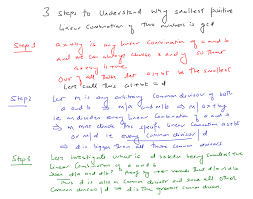 3 steps to understand why smallest positive
Linear Combination of two numbers is gcd
Step 1
ax+by is any linear combination of a and b
and we can always choose x and y so that
ax+by is +ve.
Out of all these let as+bt be the smallest
Let's call this as+bt = d
Step2
Let m is any arbitrary common divisor of both
a and b ⇒ m/a and m/b ⇒ m/ax+by
ie m divides every linear combination of a and b
⇒ m must divide this specific linear combination as+bt
or m/d ie every common divisor/d
⇒ d is bigger than all these common divisors
Step 3
Let's investigate what is d besides being
Linear Combination of a and b
d/a and d/b
thus d is also a common divisor and since all other
common divisors/d ⇒ d is the greatest common divisor.